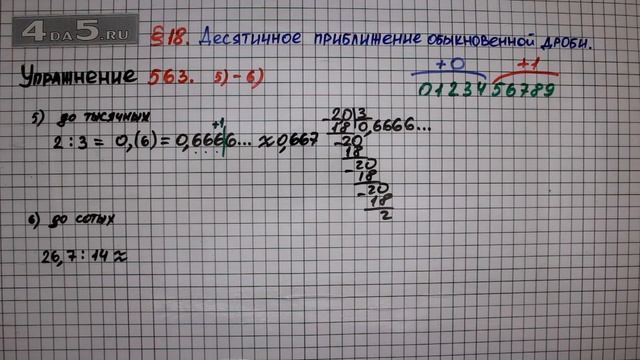 4DA5.RU
§18. Десятичное приближение обыкновенной дроби.
Упражнение 563. 5)-6)
+0 +1
0 1 2 3 4 5 6 7 8 9
5) до тысячных
2 : 3 = 0,(6) = 0,6666... ≈ 0,667
+1
20 3
18 0,6666...
-20
18
-20
18
-20
18
2
6) до сотых
26,7 : 14 ≈